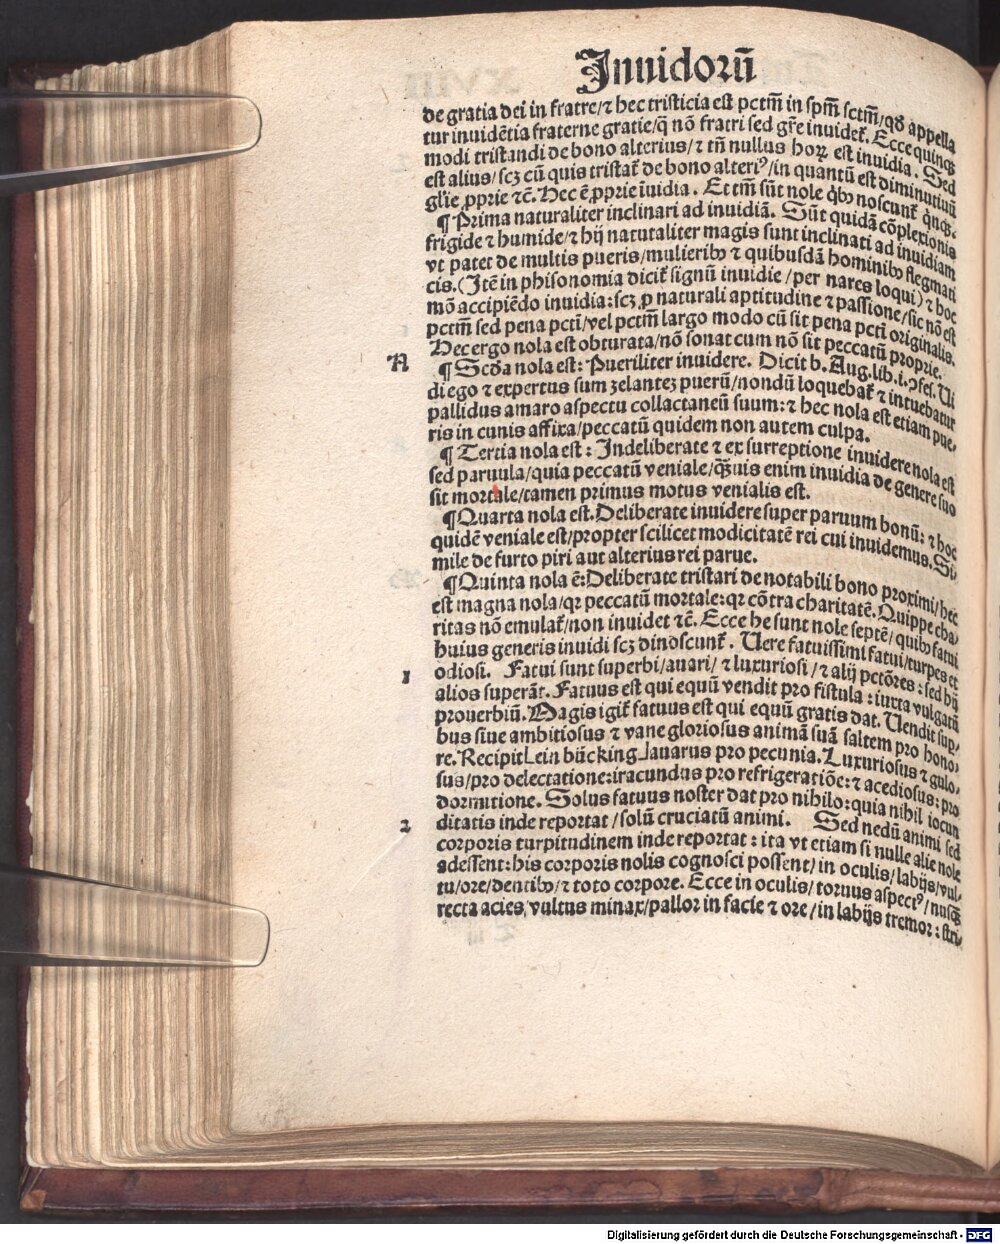 Inuidorū
de gratia dei in fratre/⁊ hec tristicia est pctm̄ in spm̄ sctm̄/qd̄ appella
tur inuidētia fraterne gratie/q̄ nō fratri sed gr̄e inuidet᷑. Ecce quinqꝫ
modi tristandi de bono alterius/⁊ tn̄ nullus hoꝝ est inuidia. Sed
est alius/scꝫ cū quis tristat᷑ de bono alteriꝰ/in quantū est diminutiuū
gl̄ie ꝓprie ⁊c̄. Hec ē ꝓprie īuidia. Et tm̄ sūt nole qͥbꝰ noscunt᷑ qͥnqꝫ.
¶ Prima naturaliter inclinari ad inuidiā. Sūt quidā cōplexionis
frigide ⁊ humide/⁊ hij naturaliter magis sunt inclinati ad inuidiam
vt patet de multis pueris/mulieribꝰ ⁊ quibusdā hominibꝰ flegmati
cis. (Itē in phisonomia dicit᷑ signū inuidie/per nares loqui) ⁊ hoc
mō accipiēdo inuidia: scꝫ ꝓ naturali aptitudine ⁊ passione/sic nō est
pctm̄ sed pena pcti/vel pctm̄ largo modo cū sit pena pcti originalis.
Hec ergo nola est obturata/nō sonat cum nō sit peccatū proprie.
A
¶ Scd̄a nola est: Pueriliter inuidere. Dicit b. Aug. lib. i. ↄfes. Ui
di ego ⁊ expertus sum zelantez puerū/nondū loquebat᷑ ⁊ intuebatur
pallidus amaro aspectu collactaneū suum: ⁊ hec nola est etiam pue-
ris in cunis affixa/peccatū quidem non autem culpa.
¶ Tercia nola est: Indeliberate ⁊ ex surreptione inuidere nola est
sed paruula/quia peccatū veniale/qͣ̄uis enim inuidia de genere suo
sit mortale/tamen primus motus venialis est.
¶Quarta nola est. Deliberate inuidere super paruum bonū: ⁊ hoc
quidē veniale est/propter scilicet modicitatē rei cui inuidemus. Si-
mile de furto piri aut alterius rei parue.
¶Quinta nola ē: Deliberate tristari de notabili bono proximi/hec
est magna nola/qꝛ peccatū mortale: qꝛ cōtra charitatē. Quippe cha-
ritas nō emulat᷑/non inuidet ⁊c̄. Ecce he sunt nole septē/quibꝰ fatui
huius generis inuidi scꝫ dinoscunt᷑. Uere fatuissimi fatui/turpes et
1
odiosi. Fatui sunt superbi/auari/⁊ luxuriosi/⁊ alij pctōres: sed hij
alios superāt. Fatuus est qui equū vendit pro fistula: iuxta vulgatū
prouerbiū. Magis igit᷑ fatuus est qui equū gratis dat. Uendit sup-
bus siue ambitiosus ⁊ vane gloriosus animā suā saltem pro hono-
re. Recipit ein bücking auarus pro pecunia. Luxuriosus ⁊ gulo-
sus/pro delectatione: iracundus pro refrigeratiōe: ⁊ acediosus: pro
dormitione. Solus fatuus noster dat pro nihilo: quia nihil iocun
2
ditatis inde reportat/solū cruciatū animi. Sed nedū animi sed
corporis turpitudinem inde reportat: ita vt etiam si nulle alie nole
adessent: his corporis nolis cognosci possent/in oculis/labijs/vul-
tu/ore/dentibꝰ/⁊ toto corpore. Ecce in oculis/toruus aspectꝰ/nusqͣ̄
recta acies, vultus minax/pallor in facie ⁊ ore/in labijs tremor: stri-
Digitalisierung gefördert durch die Deutsche Forschungsgemeinschaft - DFG